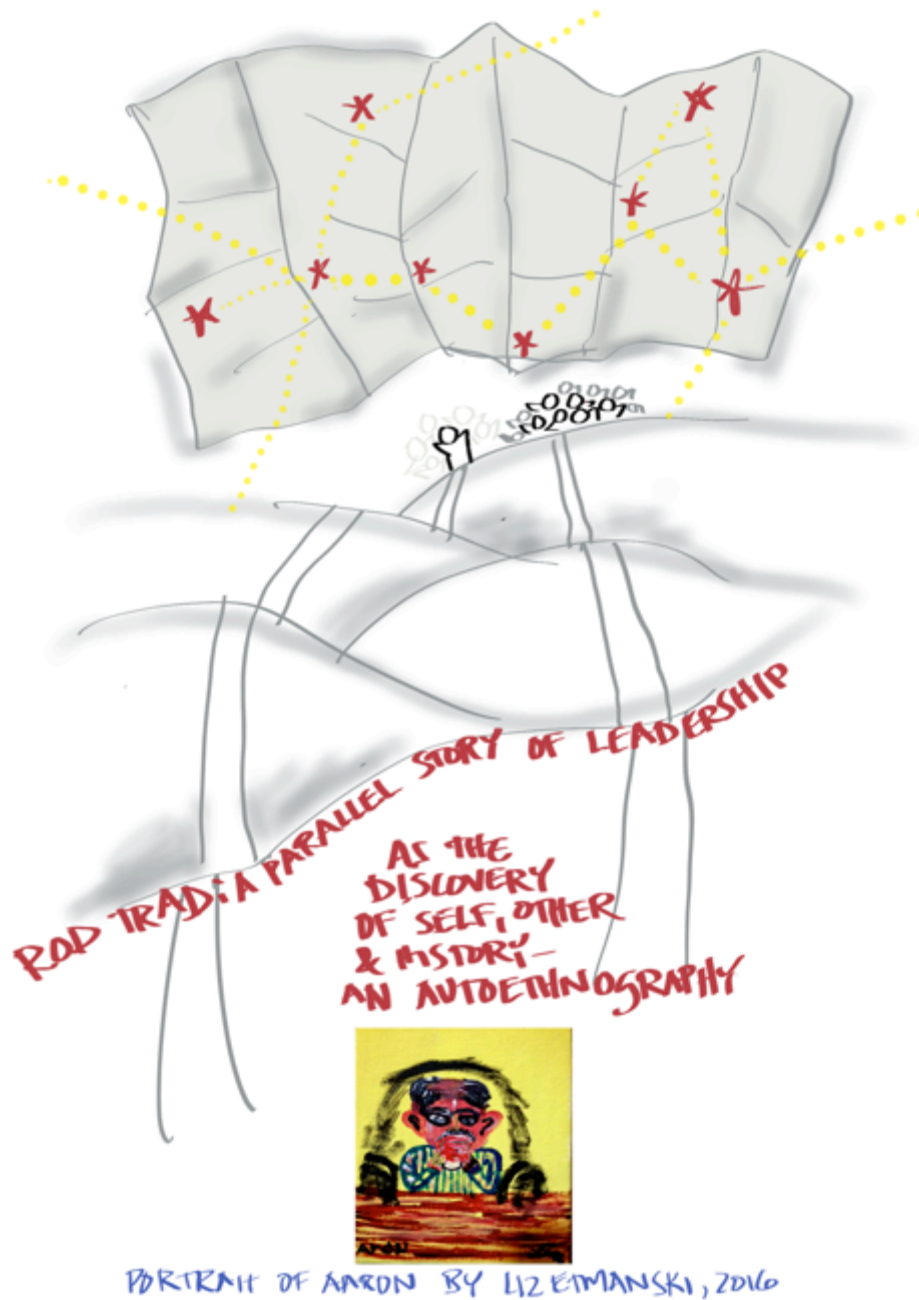 ROD TRAD: A PARALLEL STORY OF LEADERSHIP
AS THE
DISCOVERY
OF SELF, OTHER
& HISTORY—
AN AUTOETHNOGRAPHY
PORTRAIT OF AARON BY LIZ ETMANSKI, 2016